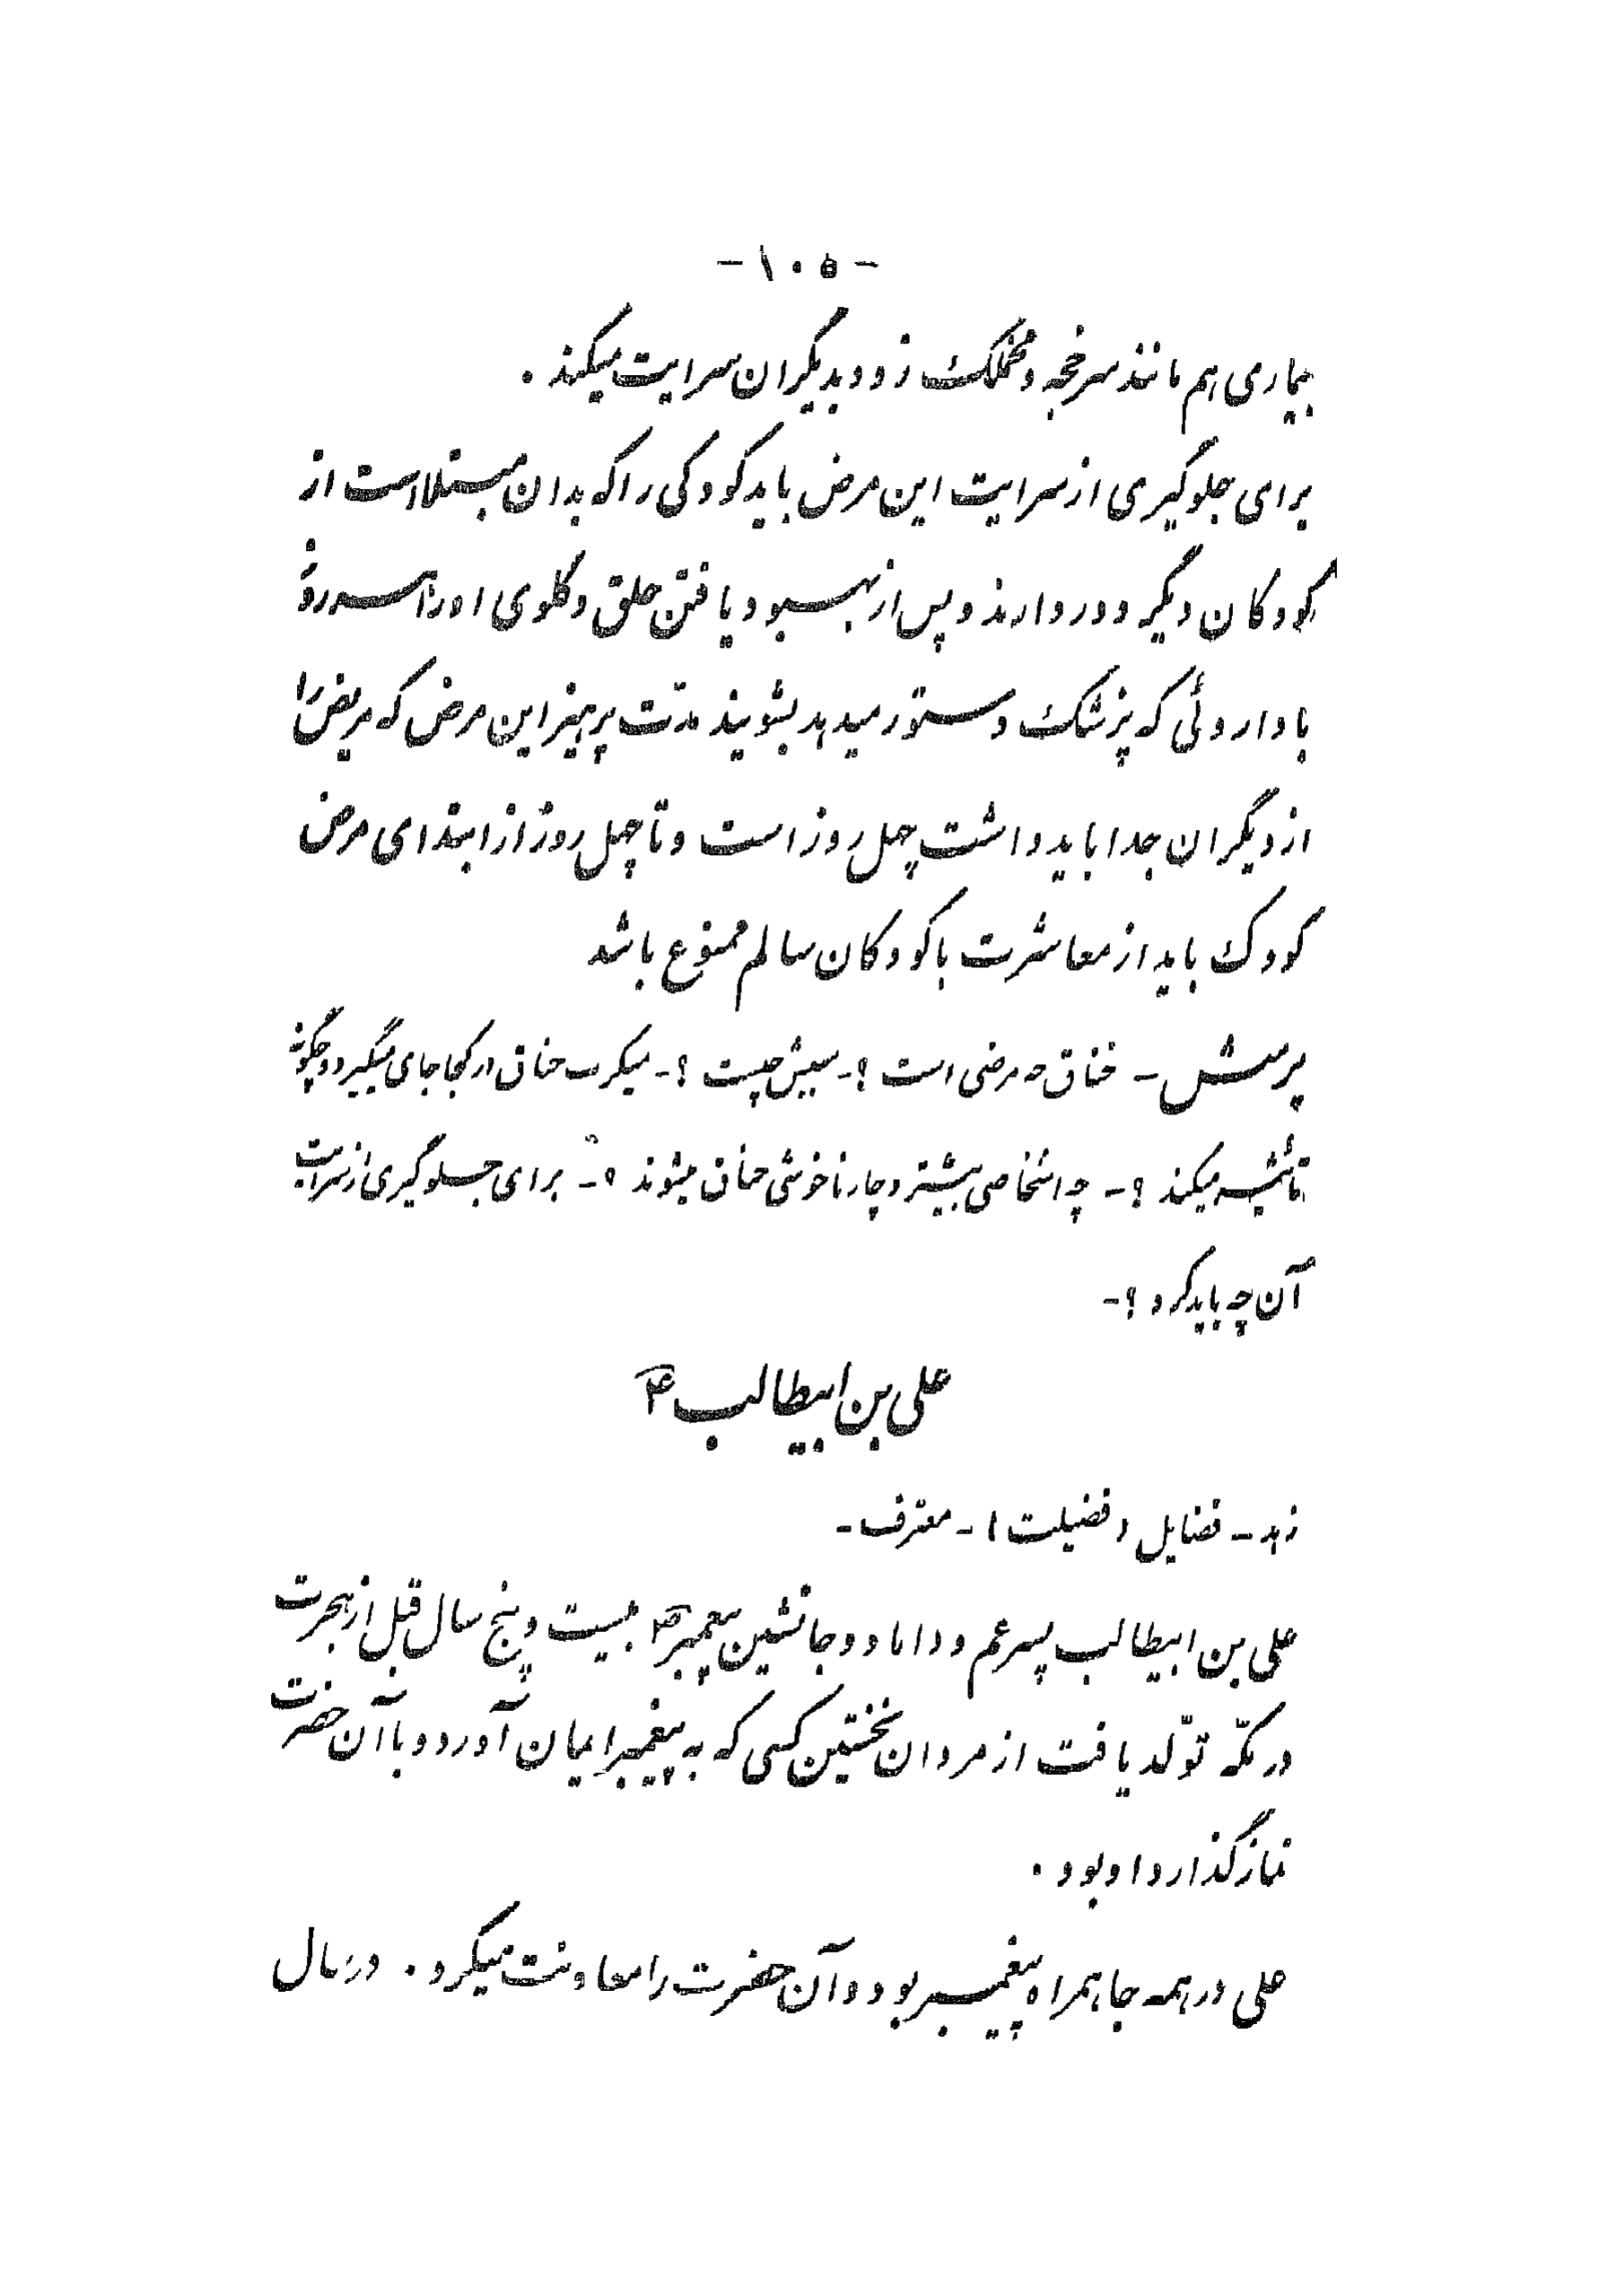 -۱۰۵-
بیماری هم مانند سرخجه و مخملک زود بدیگران سرایت میکند.
برای جلوگیری از سرایت این مرض باید کودکی را که بدان مبتلا است از
کودکان دیگر دور دارند و پس از بهبود یافتن حلق و گلوی او را همه روزه
با داروئی که پزشک دستور میدهد بشویند مدّت پرهیز این مرض که مریض را
از دیگران جدا باید داشت چهل روز است و تا چهل روز از ابتدای مرض
کودک باید از معاشرت با کودکان سالم ممنوع باشد
پرسش - خناق چه مرضی است ؟- سببش چیست ؟- میکرب خناق در کجا جای میگیرد و چگونه
تأثیر میکند ؟- چه اشخاصی بیشتر دچار ناخوشی خناق میشوند ؟- برای جلوگیری از سرایت
آن چه باید کرد ؟-
علی بن ابیطالب ع
زهد - فضایل (فضیلت) - معترف -
علی بن ابیطالب پسر عم و داماد و جانشین پیغمبر ص بیست و پنج سال قبل از هجرت
در مکّه تولّد یافت از مردان نخستین کسی که به پیغمبر ایمان آورد و با آن حضرت
نماز گذارد او بود.
علی در همه جا همراه پیغمبر بود و آن حضرت را معاونت میکرد. در سال